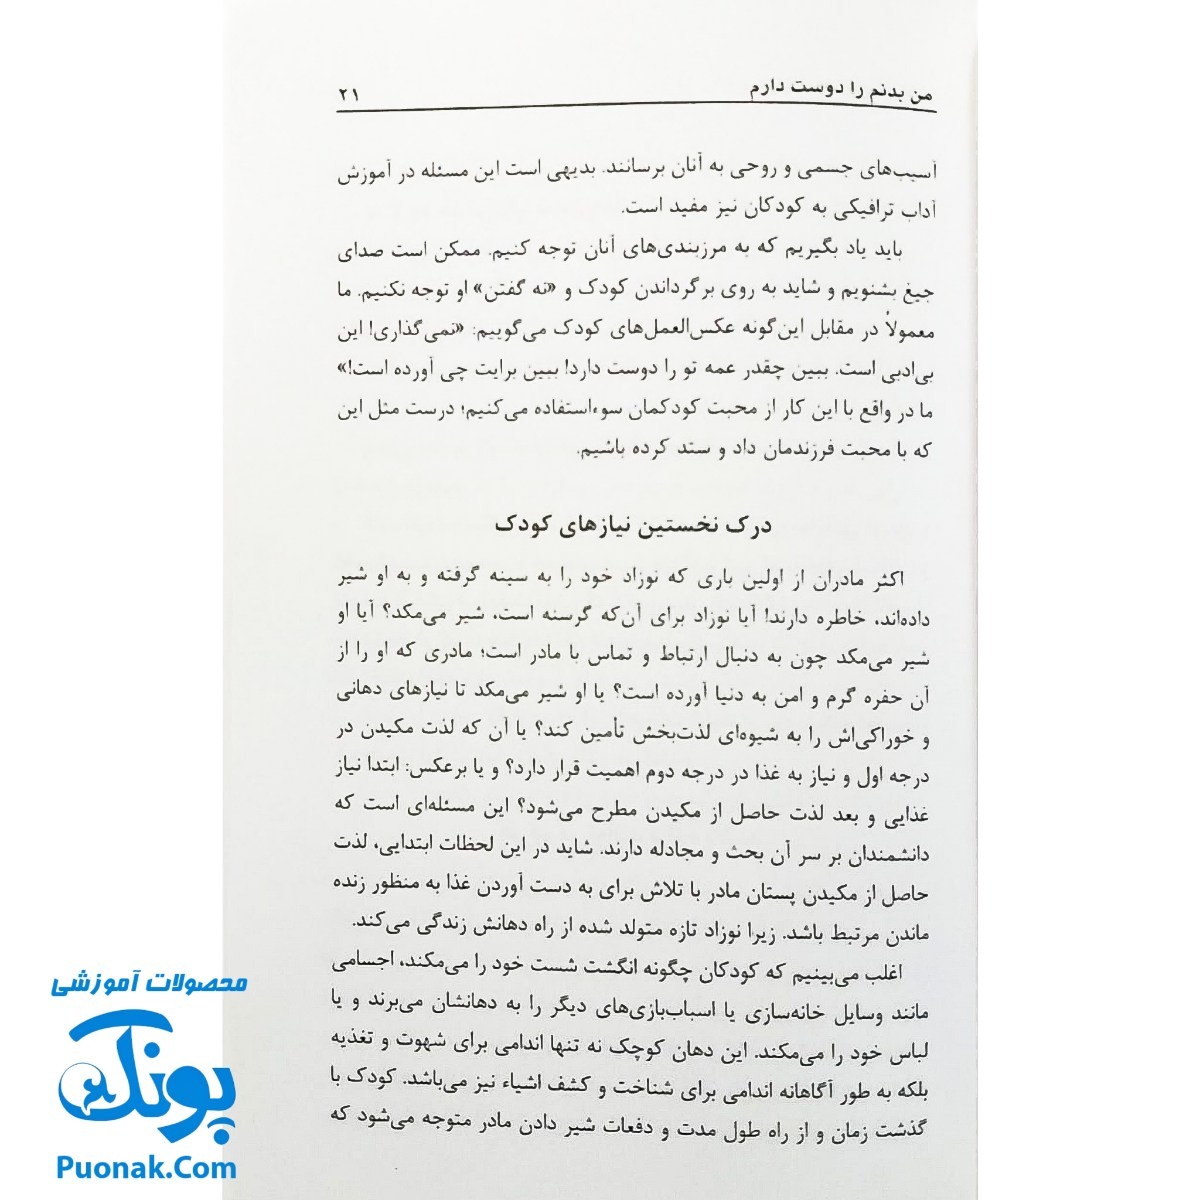 من بدنم را دوست دارم ۲۱
آسیب‌های جسمی و روحی به آنان برسانند. بدیهی است این مسئله در آموزش
آداب ترافیکی به کودکان نیز مفید است.
باید یاد بگیریم که به مرزبندی‌های آنان توجه کنیم. ممکن است صدای
جیغ بشنویم و شاید به روی برگرداندن کودک و «نه گفتن» او توجه نکنیم. ما
معمولاً در مقابل این‌گونه عکس‌العمل‌های کودک می‌گوییم: «نمی‌گذاری! این
بی‌ادبی است. ببین چقدر عمه تو را دوست دارد! ببین برایت چی آورده است!»
ما در واقع با این کار از محبت کودکمان سوءاستفاده می‌کنیم؛ درست مثل این
که با محبت فرزندمان داد و ستد کرده باشیم.
درک نخستین نیازهای کودک
اکثر مادران از اولین باری که نوزاد خود را به سینه گرفته و به او شیر
داده‌اند، خاطره دارند! آیا نوزاد برای آن‌که گرسنه است، شیر می‌مکد؟ آیا او
شیر می‌مکد چون به دنبال ارتباط و تماس با مادر است؛ مادری که او را از
آن حفره گرم و امن به دنیا آورده است؟ یا او شیر می‌مکد تا نیازهای دهانی
و خوراکی‌اش را به شیوه‌ای لذت‌بخش تأمین کند؟ یا آن که لذت مکیدن در
درجه اول و نیاز به غذا در درجه دوم اهمیت قرار دارد؟ و یا برعکس: ابتدا نیاز
غذایی و بعد لذت حاصل از مکیدن مطرح می‌شود؟ این مسئله‌ای است که
دانشمندان بر سر آن بحث و مجادله دارند. شاید در این لحظات ابتدایی، لذت
حاصل از مکیدن پستان مادر با تلاش برای به دست آوردن غذا به منظور زنده
ماندن مرتبط باشد. زیرا نوزاد تازه متولد شده از راه دهانش زندگی می‌کند.
اغلب می‌بینیم که کودکان چگونه انگشت شست خود را می‌مکند، اجسامی
مانند وسایل خانه‌سازی یا اسباب‌بازی‌های دیگر را به دهانشان می‌برند و یا
لباس خود را می‌مکند. این دهان کوچک نه تنها اندامی برای شهوت و تغذیه
بلکه به طور آگاهانه اندامی برای شناخت و کشف اشیاء نیز می‌باشد. کودک با
گذشت زمان و از راه طول مدت و دفعات شیر دادن مادر متوجه می‌شود که
محصولات آموزشی
پونک
Puonak.Com